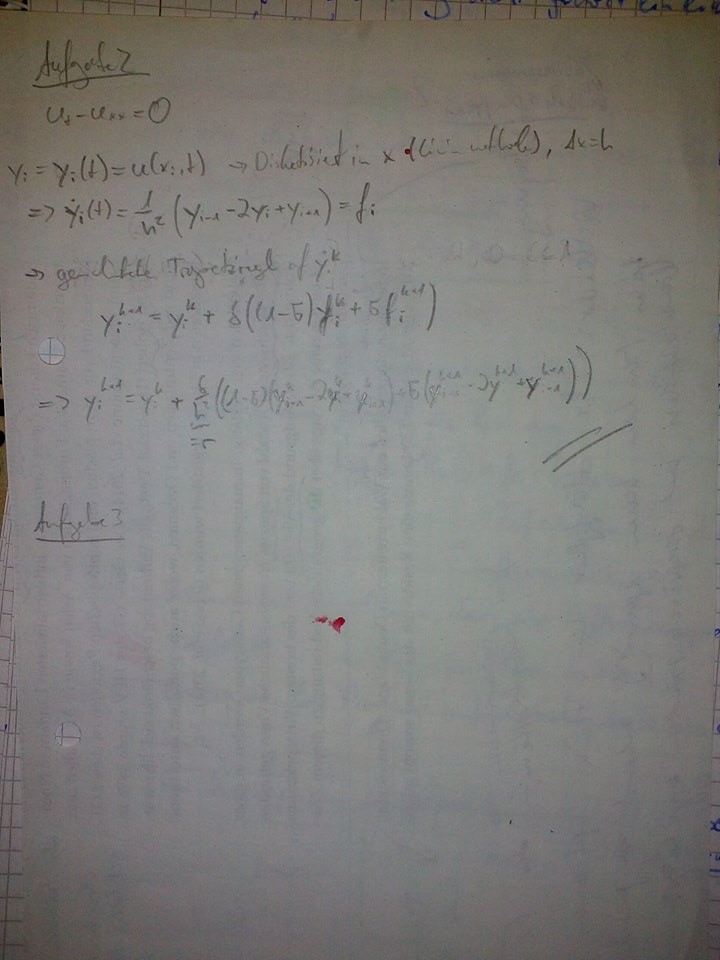 Aufgabe 2
u_t - u_xx = 0
y_i = y_i(t) = u(x_i, t) → Diskretisiert in x (Linienmethode), Δx = h
=> ẏ_i(t) = 1/h² (y_{i-1} - 2y_i + y_{i+1}) = f_i
→ gewichtete Trapezregel y_i^k
y_i^{k+1} = y_i^k + δ((1-σ) f_i^k + σ f_i^{k+1})
=> y_i^{k+1} = y_i^k + δ/h² ((1-σ)(y_{i-1}^k - 2y_i^k + y_{i+1}^k) + σ(y_{i-1}^{k+1} - 2y^{k+1} + y_{i+1}^{k+1}))
= r
Aufgabe 3